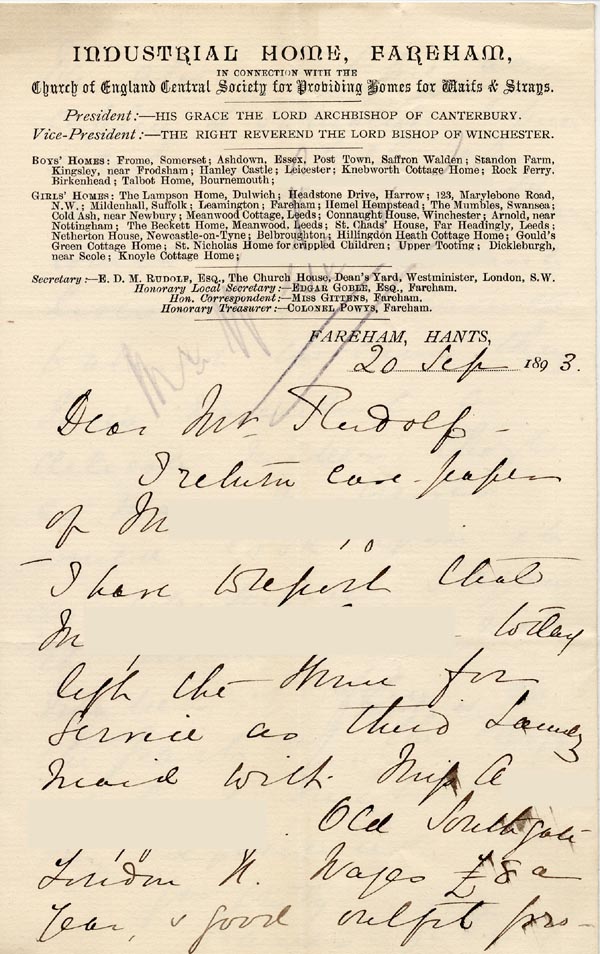 INDUSTRIAL HOME, FAREHAM,
IN CONNECTION WITH THE
Church of England Central Society for Probiding Homes for Waifs & Strays.
President:—HIS GRACE THE LORD ARCHBISHOP OF CANTERBURY.
Vice-President:—THE RIGHT REVEREND THE LORD BISHOP OF WINCHESTER.
BOYS' HOMES: Frome, Somerset; Ashdown, Essex, Post Town, Saffron Walden; Standon Farm,
Kingsley, near Frodsham; Hanley Castle; Leicester; Knebworth Cottage Home; Rock Ferry,
Birkenhead; Talbot Home, Bournemouth;
GIRLS' HOMES: The Lampson Home, Dulwich; Headstone Drive, Harrow; 123, Marylebone Road,
N.W.; Mildenhall, Suffolk; Leamington; Fareham; Hemel Hempstead; The Mumbles, Swansea;
Cold Ash, near Newbury; Meanwood Cottage, Leeds; Connaught House, Winchester; Arnold, near
Nottingham; The Beckett Home, Meanwood, Leeds; St. Chads' House, Far Headingly, Leeds;
Netherton House, Newcastle-on-Tyne; Belbroughton; Hillingdon Heath Cottage Home; Gould's
Green Cottage Home; St. Nicholas Home for crippled Children; Upper Tooting; Dickleburgh,
near Scole; Knoyle Cottage Home;
Secretary:—E. D. M. RUDOLF, ESQ., The Church House, Dean's Yard, Westminister, London, S.W.
Honorary Local Secretary:—EDGAR GOBLE, ESQ., Fareham.
Hon. Correspondent:—MISS GITTENS, Fareham.
Honorary Treasurer:—COLONEL POWYS, Fareham.
FAREHAM, HANTS,
20 Sep 1893.
Dear Mr. Rudolf –
I return case-paper
of M
I have to report that
M today
left the Home for
Service as third Laundry
Maid with Miss A
Old Southgate
London N. Wages £8 a
year, & good outfit pro-